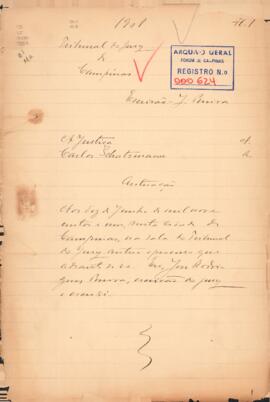 1901
Tribunal do Jury
de
Campinas
ARQUIVO GERAL
FORUM DE CAMPINAS
REGISTRO N.o
000624
Escrivão J.
A Justiça
Carlos
Autuação
Aos dez de Junho de mil nove
centos e um, nesta cidade de
Campinas, na sala do Tribunal
do Jury, autuei o processo que
adiante se ve. Eu, José Rodri
gues, escrivão do jury
o escrevi.